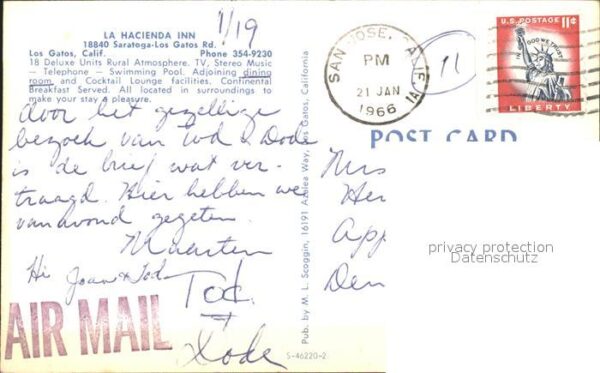 1/19
LA HACIENDA INN
18840 Saratoga-Los Gatos Rd.
Los Gatos, Calif. Phone 354-9230
18 Deluxe Units Rural Atmosphere. TV, Stereo Music
— Telephone — Swimming Pool. Adjoining dining
room, and Cocktail Lounge facilities. Continental
Breakfast Served. All located in surroundings to
make your stay a pleasure.
door het gezellige
bezoek van Tod & Dode
is de brief wat ver-
traagd. Hier hebben we
vanavond gegeten.
Maarten
Hi Joan & Tod
Tod
+
Dode
AIR MAIL
S-46220-2
Pub. by M. L. Scoggin, 16191 Azalea Way, Los Gatos, California
SAN JOSE, CALIF.
PM
21 JAN
1966
11
U.S. POSTAGE 11¢
IN GOD WE TRUST
LIBERTY
POST CARD
Mrs
Her
App
Den
privacy protection
Datenschutz